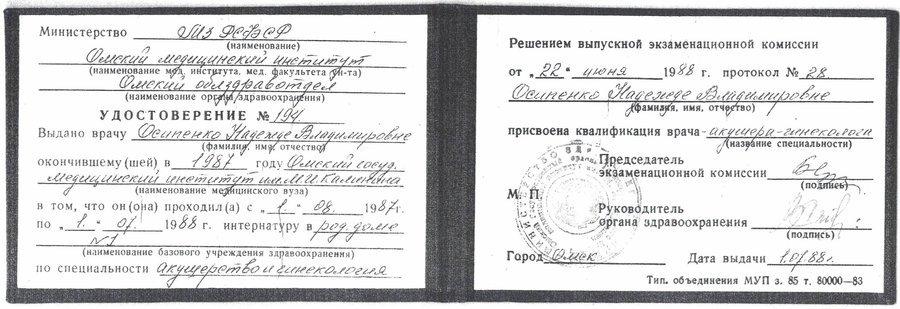 Министерство МЗ РСФСР
(наименование)
Омский медицинский институт
(наименование мед. института, мед. факультета ун-та)
Омский облздравотдел
(наименование органа здравоохранения)
УДОСТОВЕРЕНИЕ № 194
Выдано врачу Осипенко Надежде Владимировне
(фамилия, имя, отчество)
окончившему (шей) в 1987 году Омский госуд.
медицинский институт им. М.И. Калинина
(наименование медицинского вуза)
в том, что он (она) проходил (а) с „1“ 08. 1987 г.
по „1.“ 07. 1988 г. интернатуру в род. доме
№1
(наименование базового учреждения здравоохранения)
по специальности акушерство и гинекология
Решением выпускной экзаменационной комиссии
от „22“ июня 1988 г. протокол № 28.
Осипенко Надежде Владимировне
(фамилия, имя, отчество)
присвоена квалификация врача-акушера-гинеколога
(название специальности)
Председатель
экзаменационной комиссии
(подпись)
М. П.
Руководитель
органа здравоохранения
(подпись)
Город Омск Дата выдачи 1.07.88г.
Тип. объединения МУП з. 85 т. 80000—83